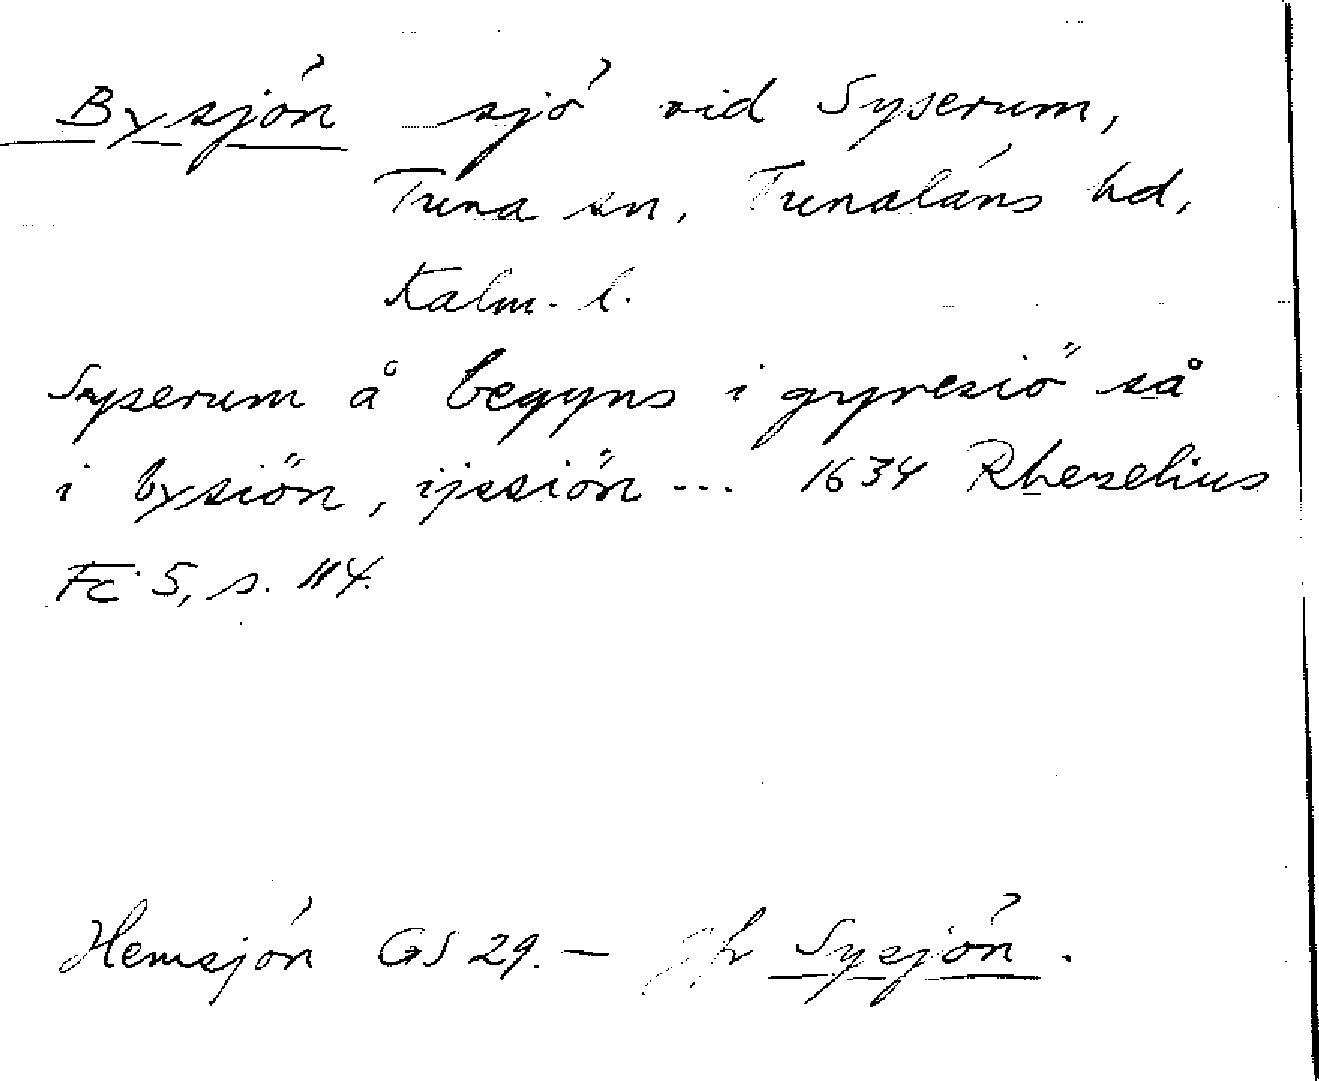 Bysjön sjö vid Syserum,
Tuna sn, Tunaläns hd,
Kalm. l.
Syserum å begyns i gryresiö så
i bysiön, ijssiön ... 1634 Rhezelius
FC 5, s. 114.
Hemsjön GS 29. – Jfr Sysjön.